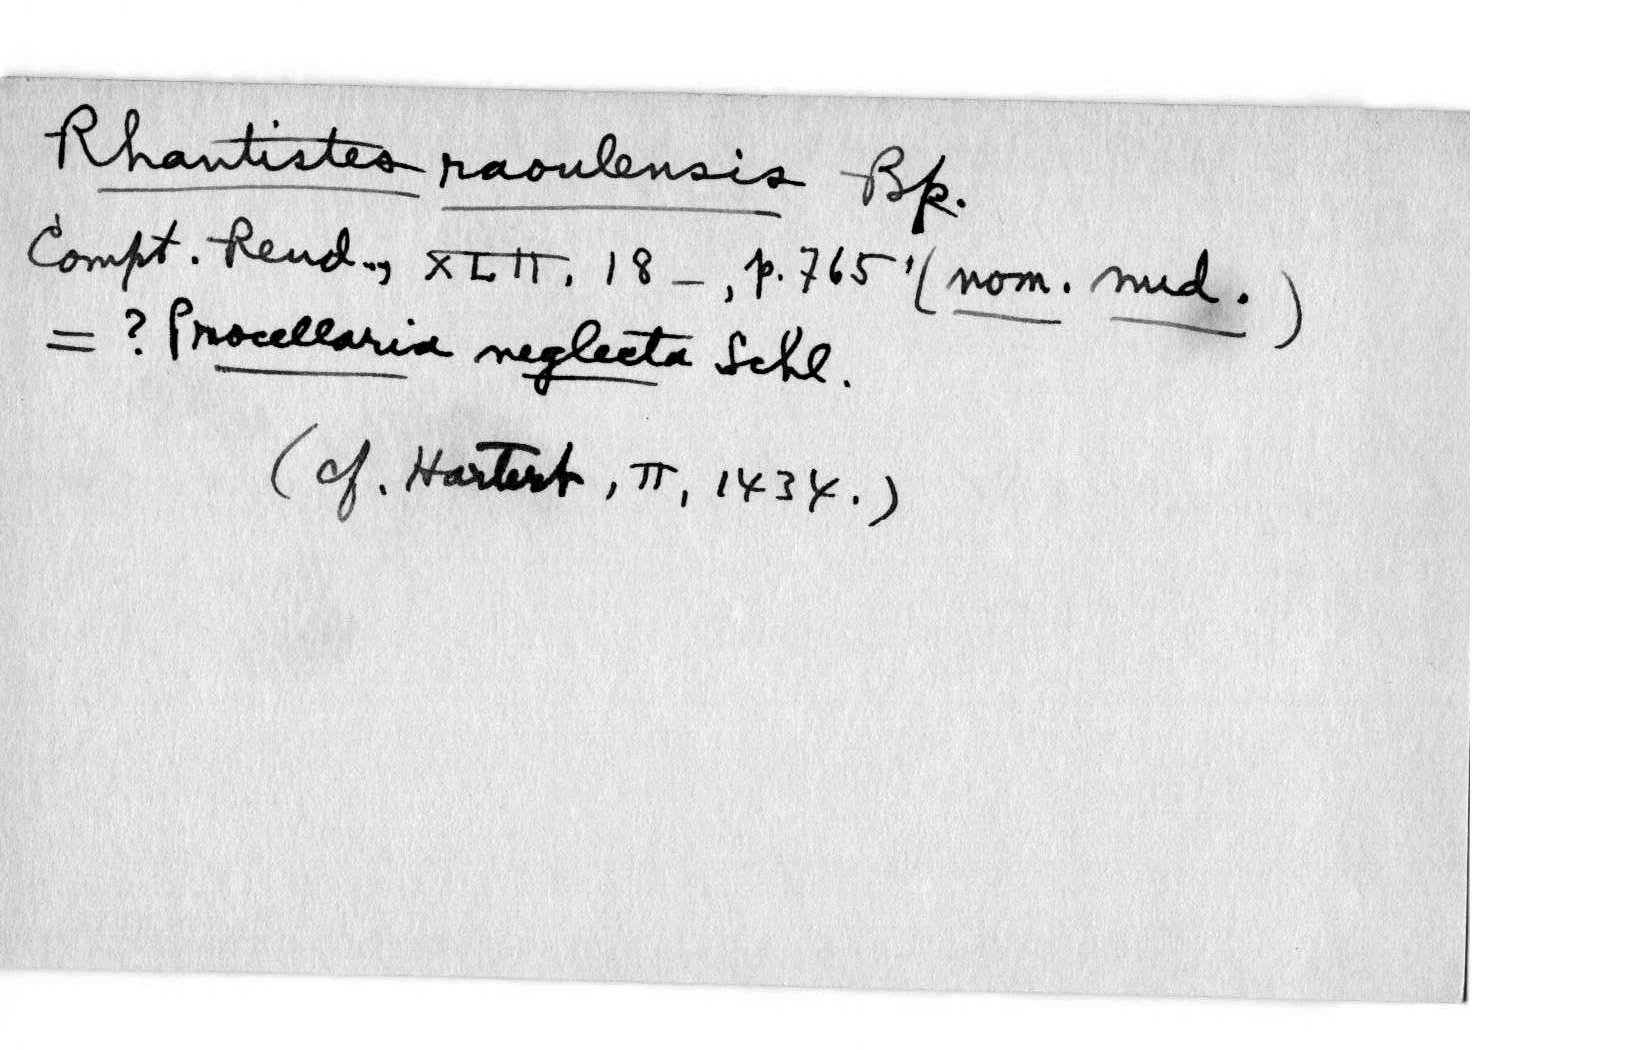 Rhantistes raoulensis Bp.
Compt. Rend., XLII, 18 –, p. 765 (nom. nud.)
= ? Procellaria neglecta Schl.
(cf. Hartert, II, 1434.)